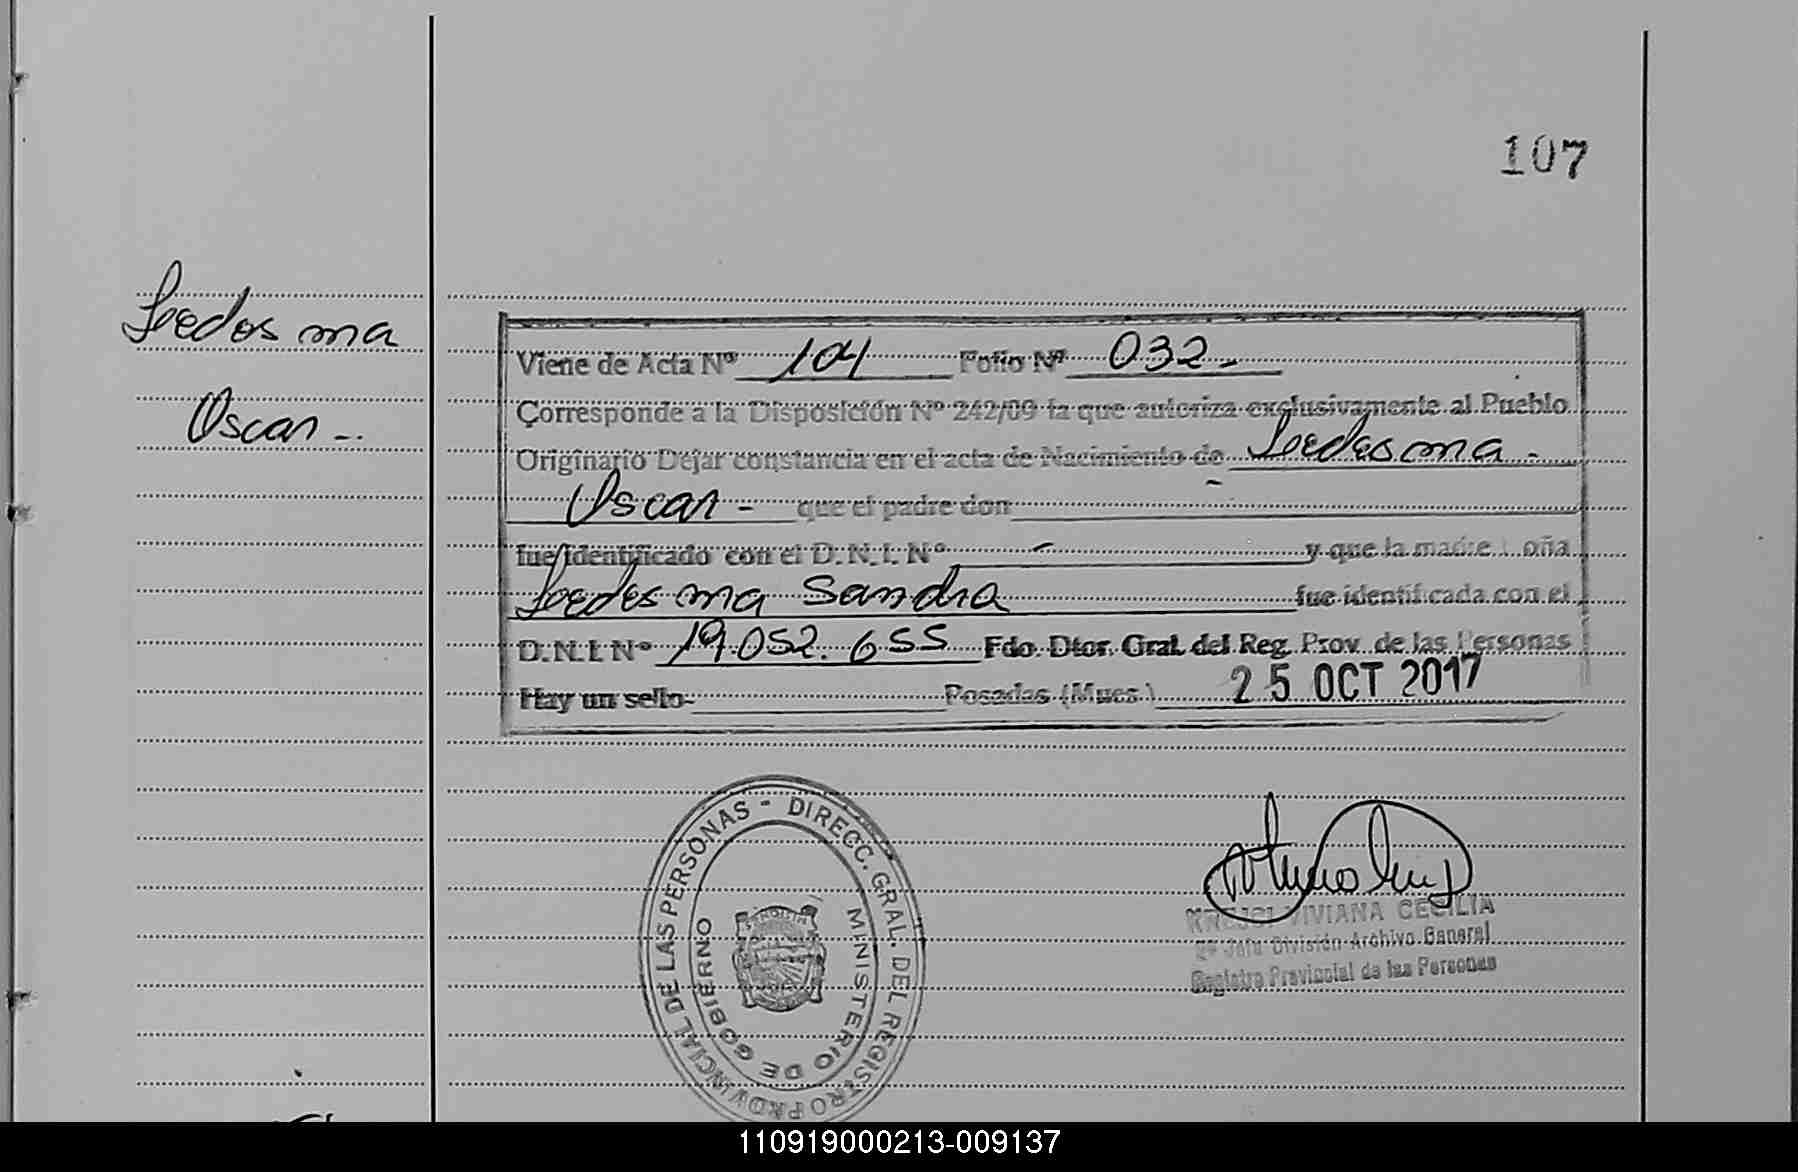 107
Ledesma
Oscar -.
Viene de Acta Nº 104 Folio Nº 032 -
Corresponde a la Disposición Nº 242/09 la que autoriza exclusivamente al Pueblo
Originario Dejar constancia en el acta de Nacimiento de Ledesma -
Oscar - que el padre don -
fue identificado con el D.N.I. Nº - y que la madre oña
Ledesma Sandra fue identificada con el
D.N.I. Nº 19.052.655 Fdo. Dtor. Gral. del Reg. Prov. de las Personas
Hay un sello- Posadas (Mnes.) 25 OCT 2017
DIRECC. GRAL. DEL REGISTRO PROVINCIAL DE LAS PERSONAS -
MINISTERIO DE GOBIERNO
KREJCI VIVIANA CECILIA
2º Jefe División Archivo General
Registro Provincial de las Personas
110919000213-009137